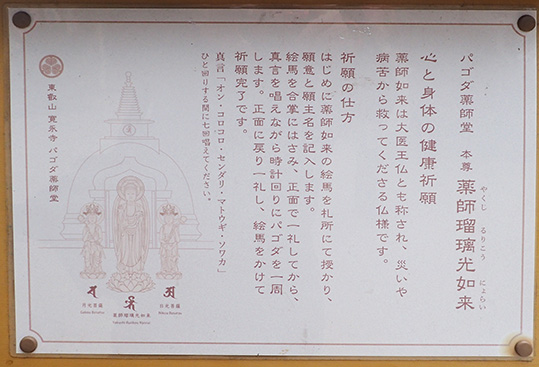 パゴダ薬師堂 本尊 薬師瑠璃光如来
やくし るりこう にょらい
心と身体の健康祈願
薬師如来は大医王仏とも称され、災いや
病苦から救ってくださる仏様です。
祈願の仕方
はじめに薬師如来の絵馬を札所にて授かり、
願意と願主名を記入します。
絵馬を合掌にはさみ、正面で一礼してから、
真言を唱えながら時計回りにパゴダを一周
します。正面に戻り一礼し、絵馬をかけて
祈願完了です。
真言「オン・コロコロ・センダリ・マトウギ・ソワカ」
ひと回りする間に七回唱えてください。
日光菩薩
薬師瑠璃光如来
月光菩薩
東叡山 寛永寺 パゴダ薬師堂